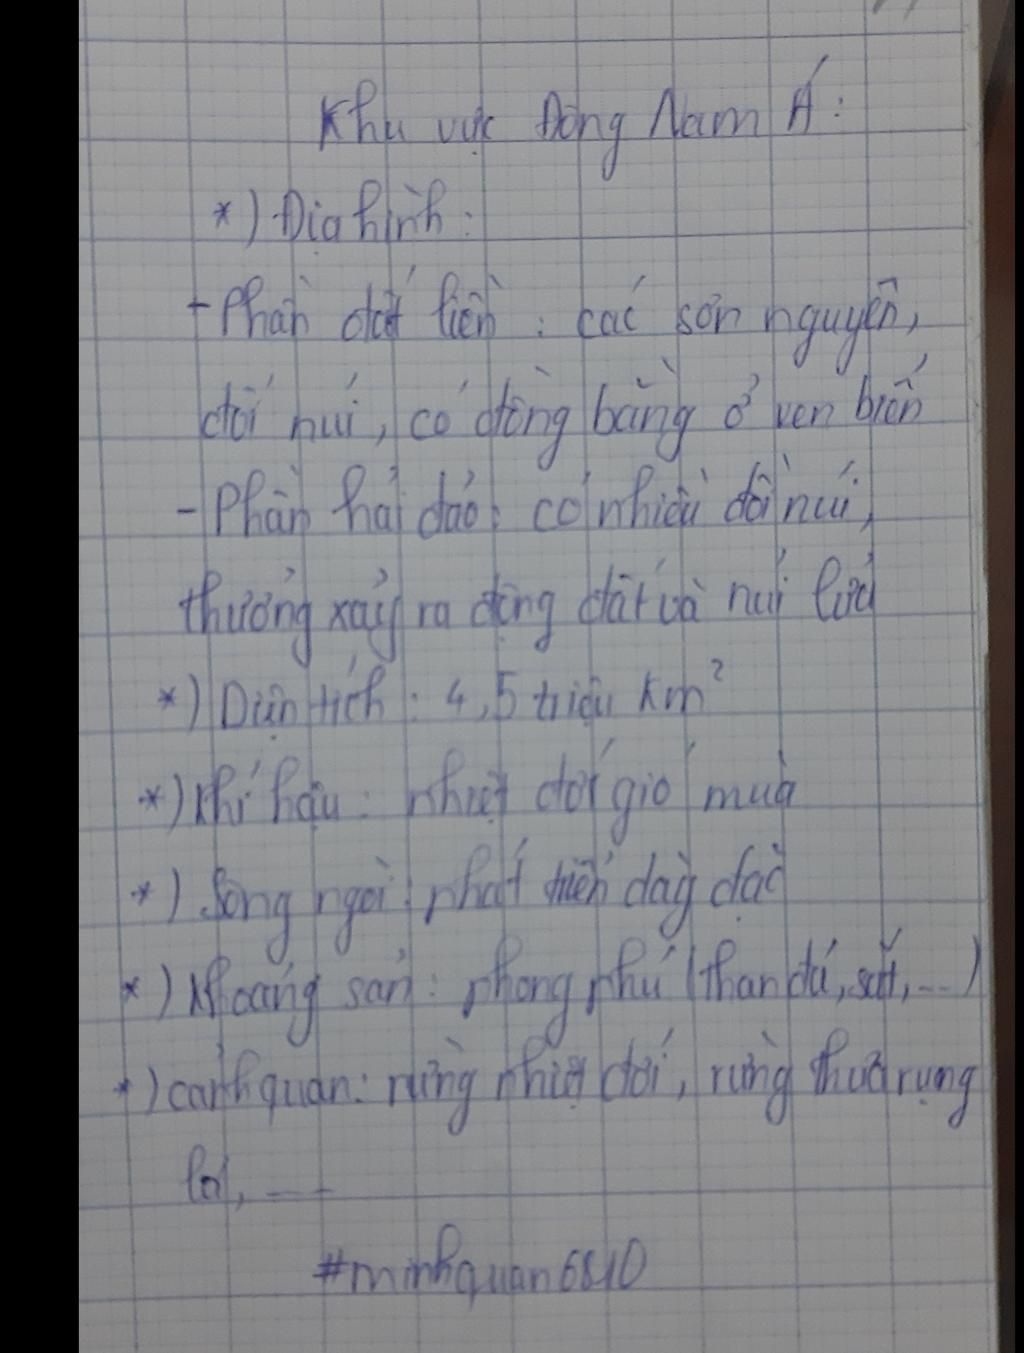 Khu vực Đông Nam Á:
*) Địa hình:
- Phần đất liền: các sơn nguyên,
đồi núi, có đồng bằng ở ven biển
- Phần hải đảo: có nhiều đồi núi,
thường xảy ra động đất và núi lửa
*) Diện tích: 4,5 triệu km²
*) Khí hậu: nhiệt đới gió mùa
*) Sông ngòi: phát triển dày đặc
*) Khoáng sản: phong phú (than đá, sắt,...)
*) cảnh quan: rừng nhiệt đới, rừng thưa rụng
lá, ...